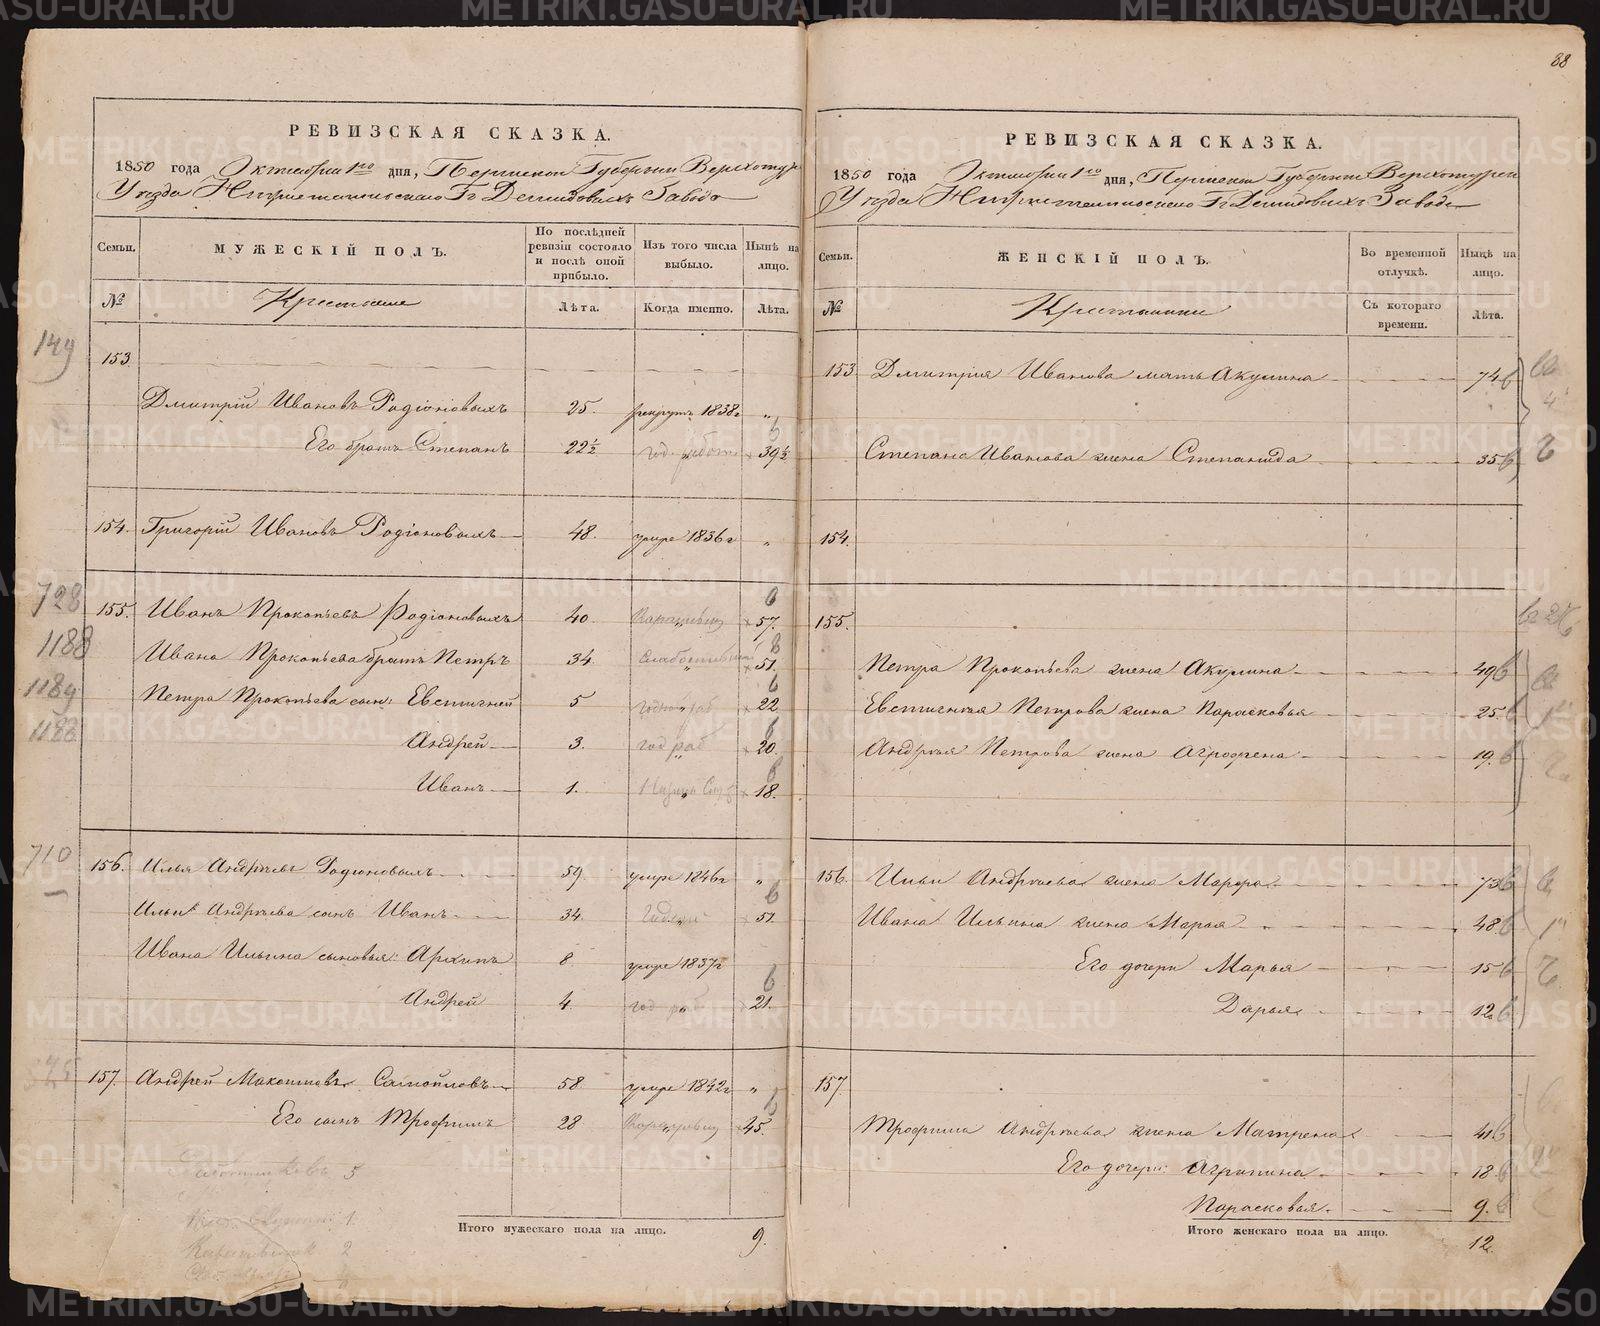 88
РЕВИЗСКАЯ СКАЗКА.
1850 года Октября 1го дня, Пермской Губернии Верхотур
Уезда Нижнетагильского Гг Демидовых Завода
Семьи. МУЖЕСКІЙ ПОЛЪ. По послѣдней ревизіи состояло и послѣ оной прибыло. Изъ того числа выбыло. Нынѣ на лицо.
№ Крестьяне Лѣта. Когда именно. Лѣта.
149
153
Дмитрій Ивановъ Родіоновыхъ 25. рекрутъ 1838г „
Его братъ Степанъ 22½ год. работ 39½
154. Григорій Ивановъ Родіоновыхъ 48. умре 1836г „
728
155. Иванъ Прокопьевъ Родіоновыхъ 40. 57.
1188
Ивана Прокопьева братъ Петръ 34. 51.
1189
Петра Прокопьева сын: Евстигней 5 22
Андрей 3. год раб 20.
Иванъ 1. 18.
710
156. Илья Андреевъ Родіоновыхъ 59. умре 1846г „
Ильи Андреева сынъ Иванъ 34. 51.
Ивана Ильина сыновья: Архипъ 8 умре 1837г
Андрей 4. год раб 21.
157. Андрей Максимовъ Самойловъ 58 умре 1842г „
Его сынъ Трофимъ 28 45.
5
1
2
Итого мужескаго пола на лицо. 9.
РЕВИЗСКАЯ СКАЗКА.
1850 года Октября 1го дня, Пермской Губернии Верхотурск
Уезда Нижнетагильского Гг Демидовых Завода
Семьи. ЖЕНСКІЙ ПОЛЪ. Во временной отлучкѣ. Нынѣ на лицо.
№ Крестьянки Съ котораго времени. Лѣта.
153 Дмитрія Иванова мать Акулина 74
Степана Иванова жена Степанида 35
154.
155.
Петра Прокопьева жена Акулина 49
Евстигнея Петрова жена Парасковья 25.
Андрея Петрова жена Агрофена 19.
156. Ильи Андреева жена Марфа 73
Ивана Ильина жена Марья 48.
Его дочери Марья 15
Дарья 12
157
Трофима Андреева жена Матрена 41
Его дочери: Агрипина 18.
Парасковья. 9.
Итого женскаго пола на лицо. 12
METRIKI.GASO-URAL.RU